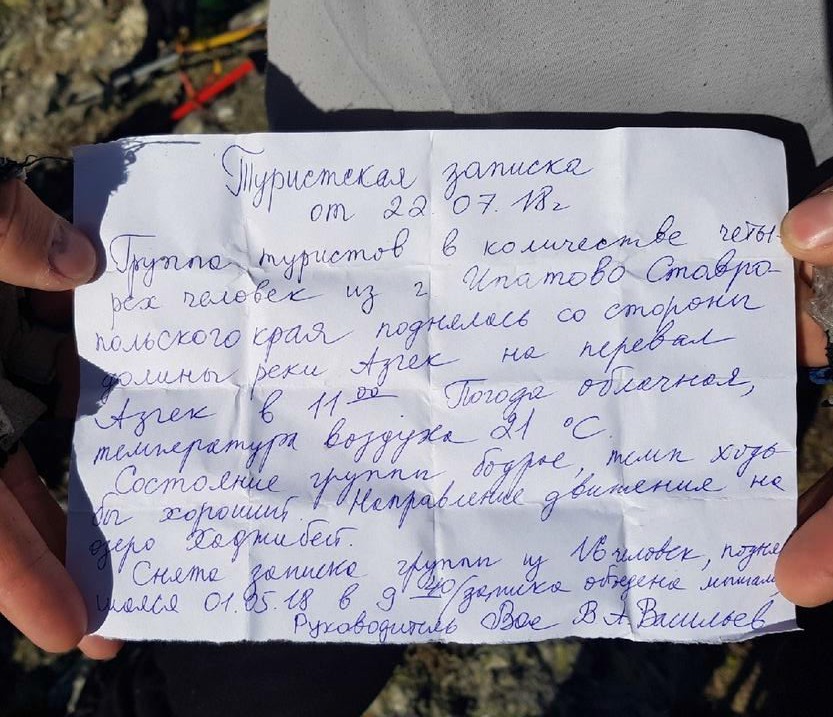 Туристская записка
от 22 07. 18г
Группа туристов в количестве четы-
рех человек из г Ипатово Ставро-
польского края поднялась со стороны
долины реки Азгек на перевал
Азгек в 11 00 Погода облачная,
температура воздуха 21 °С.
Состояние группы бодрое, темп ходь
бы хороший. Направление движения на
озеро Хаджибей.
Снята записка группы из 16 человек, подня
шаяся 01.05.18 в 9 40 (записка объедена мышами
Руководитель Вас В А Васильев